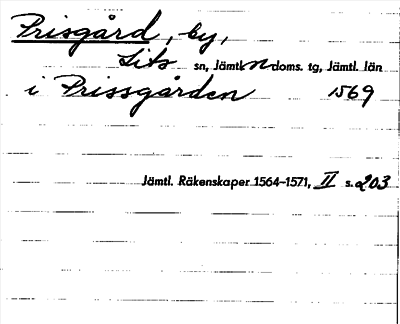 Prisgård, by,
Lits sn, Jämtl. n doms. tg, Jämtl. län
i Prissgården 1569
Jämtl. Räkenskaper 1564-1571, II s. 203